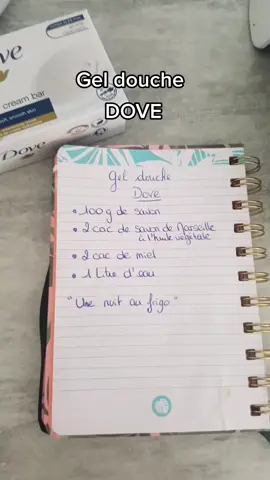 Dove
cream bar
Gel douche
DOVE
Dove
Gel douche
Dove
• 100g de savon
• 2 cac de savon de Marseille
à l'huile végétale
• 2 cac de miel
• 1 Litre d'eau
"Une nuit au frigo"